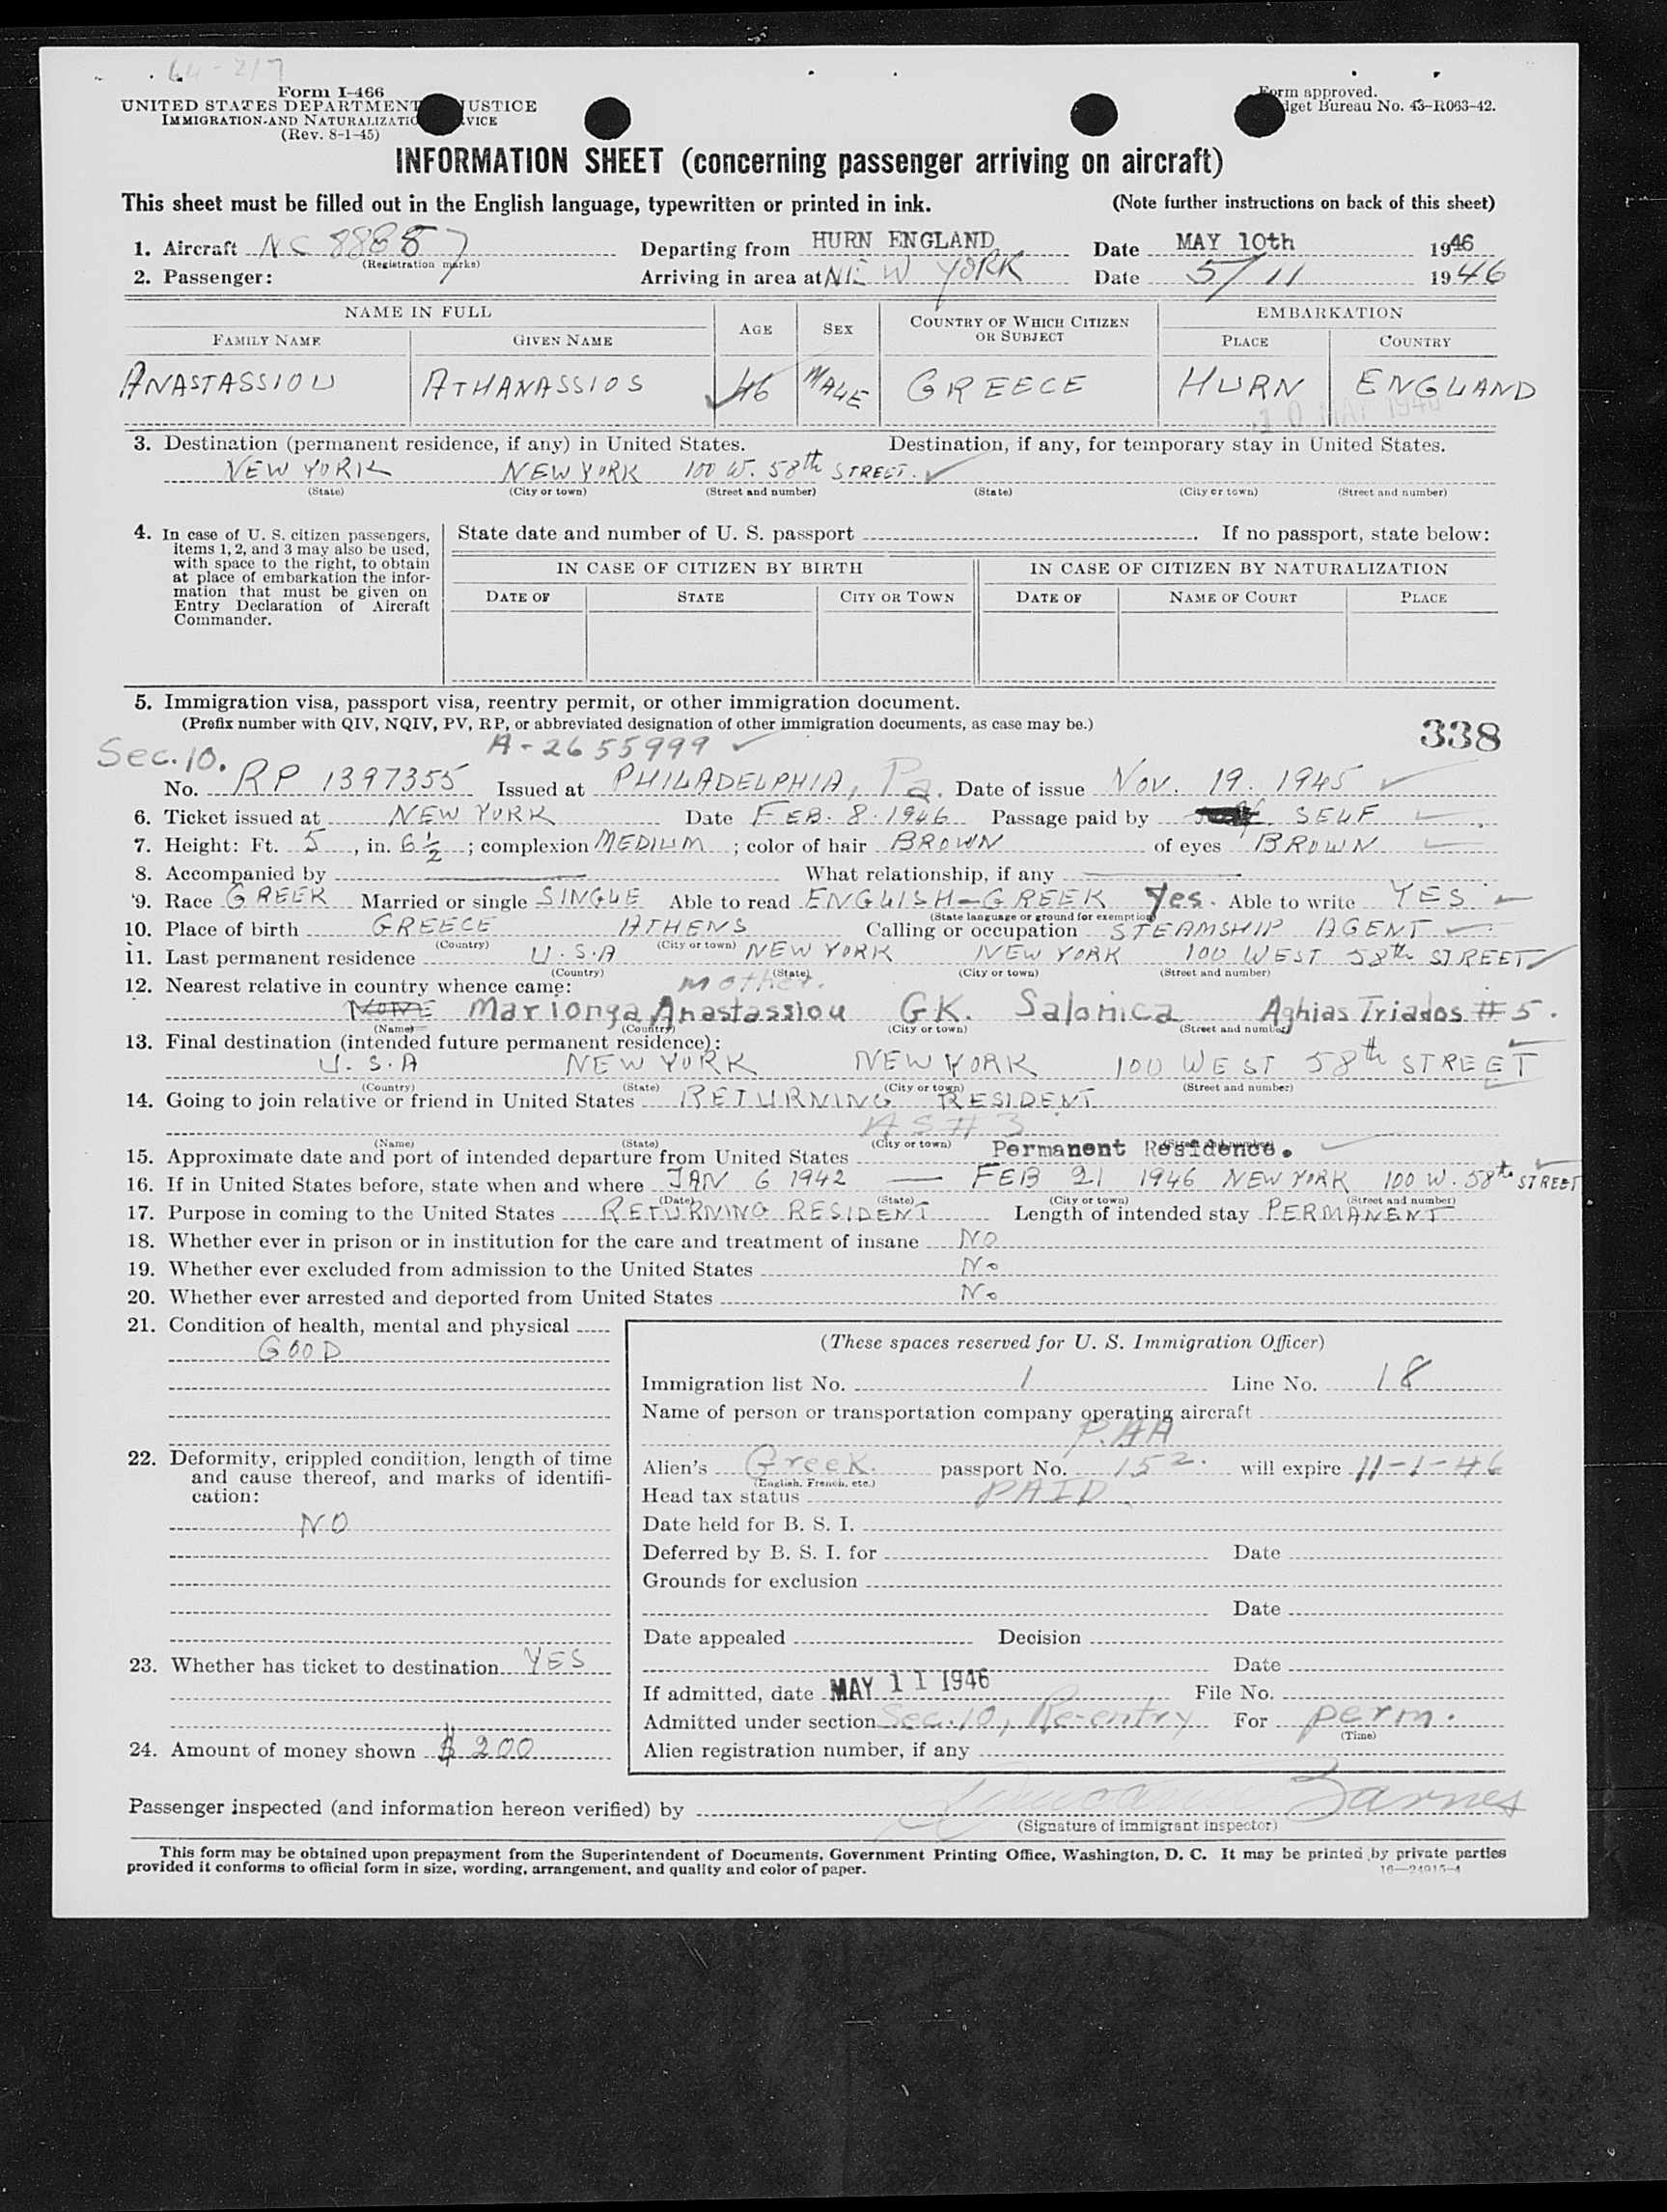 Form I-466
UNITED STATES DEPARTMENT JUSTICE
IMMIGRATION AND NATURALIZATIO VICE
(Rev. 8-1-45)
Form approved.
dget Bureau No. 43-R063-42.
INFORMATION SHEET (concerning passenger arriving on aircraft)
This sheet must be filled out in the English language, typewritten or printed in ink. (Note further instructions on back of this sheet)
1. Aircraft NC 88857 Departing from HURN ENGLAND Date MAY 10th 1946
(Registration marks)
2. Passenger: Arriving in area at NEW YORK Date 5/11 1946
NAME IN FULL AGE SEX COUNTRY OF WHICH CITIZEN OR SUBJECT EMBARKATION
FAMILY NAME GIVEN NAME PLACE COUNTRY
ANASTASSIOU ATHANASSIOS 46 MALE GREECE HURN ENGLAND
10 MAY 1946
3. Destination (permanent residence, if any) in United States. Destination, if any, for temporary stay in United States.
NEW YORK NEW YORK 100 W. 58th STREET.
(State) (City or town) (Street and number) (State) (City or town) (Street and number)
4. In case of U. S. citizen passengers,
items 1, 2, and 3 may also be used,
with space to the right, to obtain
at place of embarkation the infor-
mation that must be given on
Entry Declaration of Aircraft
Commander.
State date and number of U. S. passport . If no passport, state below:
IN CASE OF CITIZEN BY BIRTH IN CASE OF CITIZEN BY NATURALIZATION
DATE OF STATE CITY OR TOWN DATE OF NAME OF COURT PLACE
5. Immigration visa, passport visa, reentry permit, or other immigration document.
(Prefix number with QIV, NQIV, PV, RP, or abbreviated designation of other immigration documents, as case may be.)
338
Sec. 10. A-2655999
No. RP 1397355 Issued at PHILADELPHIA, Pa. Date of issue Nov. 19. 1945
6. Ticket issued at NEW YORK Date FEB. 8. 1946 Passage paid by SELF
7. Height: Ft. 5, in. 6 1/2; complexion MEDIUM; color of hair BROWN of eyes BROWN
8. Accompanied by What relationship, if any
9. Race GREEK Married or single SINGLE Able to read ENGLISH-GREEK Yes. Able to write YES
(State language or ground for exemption)
10. Place of birth GREECE ATHENS Calling or occupation STEAMSHIP AGENT
(Country) (City or town)
11. Last permanent residence U.S.A NEW YORK NEW YORK 100 WEST 58th STREET
(Country) (State) (City or town) (Street and number)
12. Nearest relative in country whence came: mother.
NONE Marionga Anastassiou GK. Salonica Aghias Triados #5.
(Name) (Country) (City or town) (Street and number)
13. Final destination (intended future permanent residence):
U.S.A NEW YORK NEW YORK 100 WEST 58th STREET
(Country) (State) (City or town) (Street and number)
14. Going to join relative or friend in United States RETURNING RESIDENT
(Name) (State) (City or town) (Street and number)
15. Approximate date and port of intended departure from United States Permanent Residence.
16. If in United States before, state when and where JAN 6 1942 — FEB 21 1946 NEW YORK 100 W. 58th STREET
(Date) (State) (City or town) (Street and number)
17. Purpose in coming to the United States RETURNING RESIDENT Length of intended stay PERMANENT
18. Whether ever in prison or in institution for the care and treatment of insane NO
19. Whether ever excluded from admission to the United States No
20. Whether ever arrested and deported from United States No
21. Condition of health, mental and physical
GOOD
22. Deformity, crippled condition, length of time
and cause thereof, and marks of identifi-
cation:
NO
23. Whether has ticket to destination YES
24. Amount of money shown $ 200
(These spaces reserved for U. S. Immigration Officer)
Immigration list No. 1 Line No. 18
Name of person or transportation company operating aircraft
P.AA
Alien's Greek. passport No. 152. will expire 11-1-46
(English, French, etc.)
Head tax status PAID
Date held for B. S. I.
Deferred by B. S. I. for Date
Grounds for exclusion
Date
Date appealed Decision
Date
If admitted, date MAY 11 1946 File No.
Admitted under section Sec. 10, Re-entry For perm.
(Time)
Alien registration number, if any
Passenger inspected (and information hereon verified) by Barnes
(Signature of immigrant inspector)
This form may be obtained upon prepayment from the Superintendent of Documents, Government Printing Office, Washington, D. C. It may be printed by private parties
provided it conforms to official form in size, wording, arrangement, and quality and color of paper.
16—24915-4